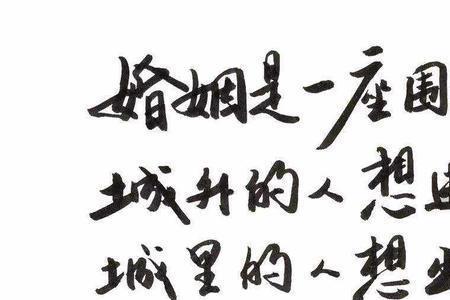 婚姻是一座围
城升的人想进
城里的人想出